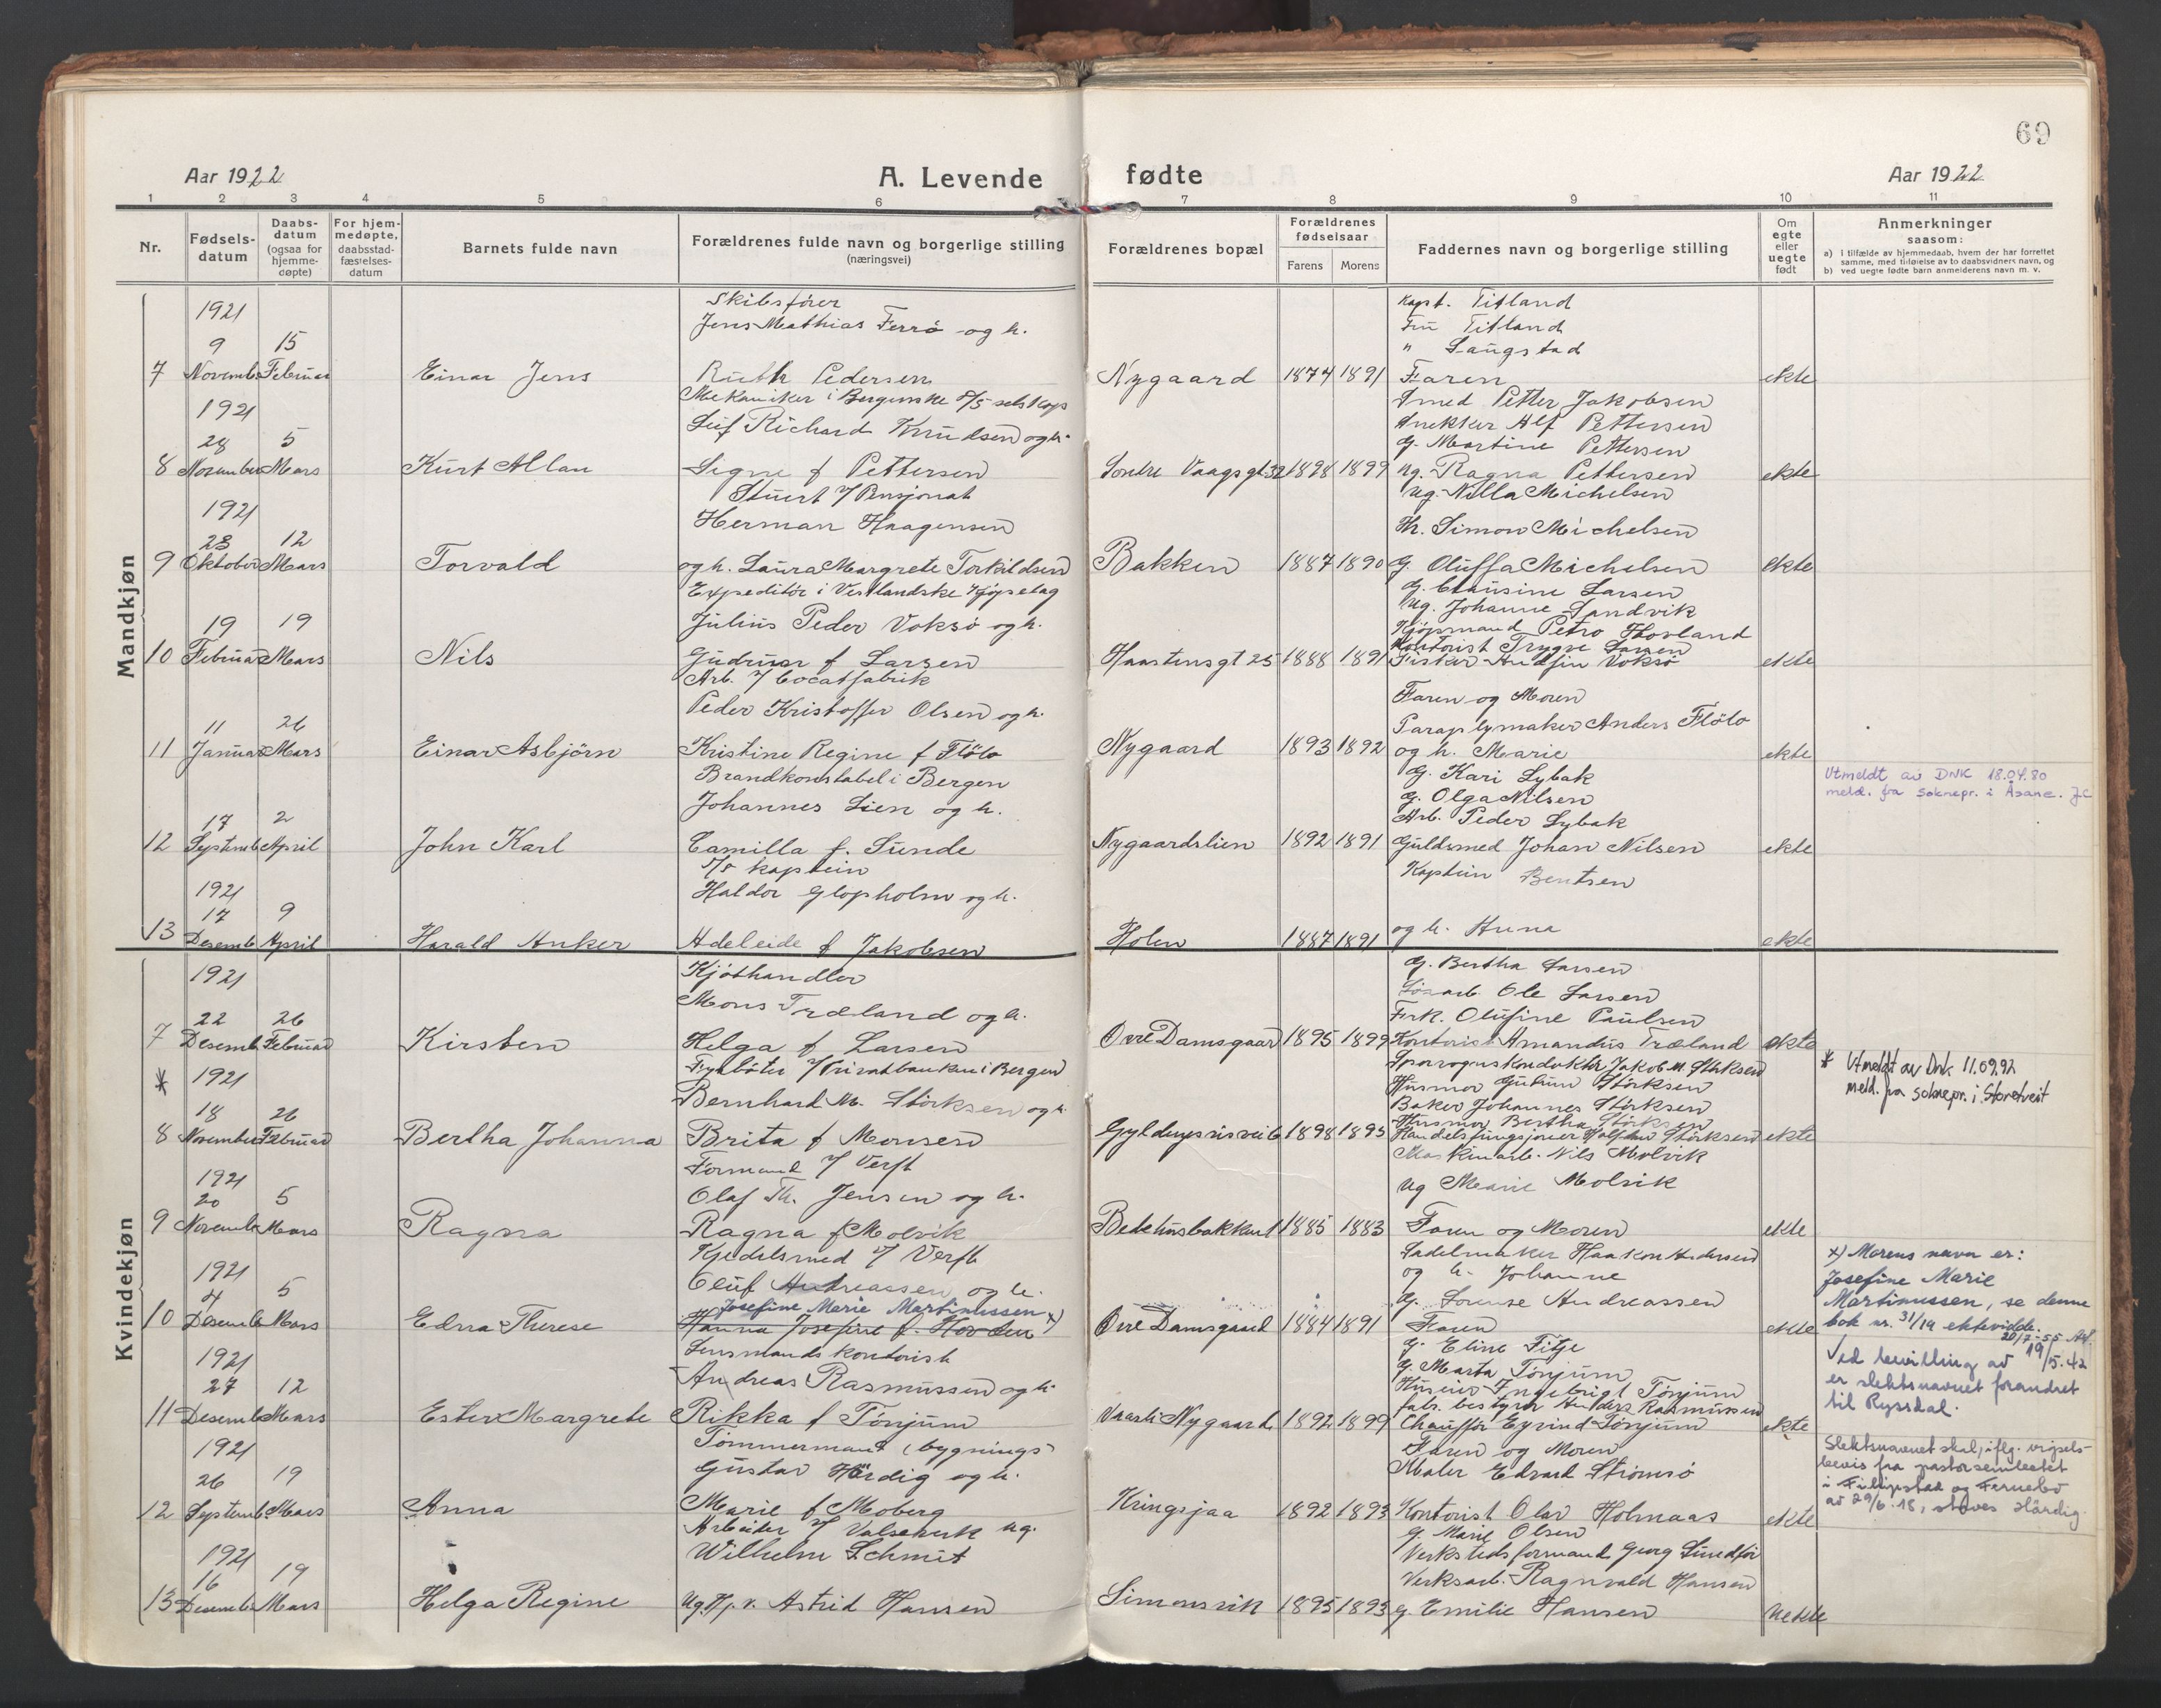 69
Aar 1922
A. Levende fødte
Aar 1922
1 2 3 4 5 6 7 8 9 10 11
Nr.
Fødsels-
datum
Daabs-
datum
(ogsaa for
hjemme-
døpte)
For hjem-
medøpte,
daabsstad-
fæstelses-
datum
Barnets fulde navn
Forældrenes fulde navn og borgerlige stilling
(næringsvei)
Forældrenes bopæl
Forældrenes
fødselsaar
Farens Morens
Faddernes navn og borgerlige stilling
Om
egte
eller
uegte
født
Anmerkninger
saasom:
a) i tilfælde av hjemmedaab, hvem der har forrettet
samme, med tilføielse av to daabsvidners navn, og
b) ved uegte fødte barn anmelderens navn m. v.
Mandkjøn
1921
9 15
7 Novemb Februar
Einar Jens
Skibsfører
Jens Mathias Ferrø og h.
Ruth Pedersen
Nygaard 1874 1891
Kapt. Titland
Fru Titland
" Langstad
Faren
ekte
1921
28 5
8 November Mars
Kurt Allan
Mekaniker i Bergenske D/S selskap
Leif Richard Knudsen og h.
Signe f Pettersen
Søndre Vaagsgt 32 1898 1899
Smed Petter Jakobsen
Snekker Alf Pettersen
G. Martine Pettersen
Ug. Ragna Pettersen
ekte
1921
23 12
9 Oktober Mars
Torvald
Stuert v/ Pensjonat
Herman Haagensen
og h. Laura Margrete Torkildsen
Bakken 1887 1890
Ug. Nilla Michelsen
Hr. Simon Michelsen
G. Oluffa Michelsen
ekte
19 19
10 Februar Mars
Nils
Expeditør i Vestlandske Kjøpelag
Julius Peder Voksø og h.
Gudrun f Larsen
Haastensgt 25 1888 1891
G. Clausine Larsen
Ug. Johanne Sandvik
Kjøpmand Petro Hovland
Kontorist Trygve Larsen
Fisker Andfin Voksø
ekte
11 26
11 Januar Mars
Einar Asbjørn
Arb. v/ Cocatfabrik
Peder Kristoffer Olsen og h.
Kristine Regine f Flølo
Nygaard 1893 1892
Faren og Moren
Paraplymaker Anders Flølo
og h. Marie
ekte
Utmeldt av DNK 18.04.80
meld. fra soknepr. i Åsane. JC
17 2
12 Septemb April
John Karl
Brandkonstabel i Bergen
Johannes Lien og h.
Camilla f. Sunde
Nygaardslien 1892 1891
G. Kari Lybak
G. Olga Nilsen
Arb. Peder Lybak
Guldsmed Johan Nilsen
ekte
1921
17 9
13 Desemb April
Harald Anker
D/S kaptein
Haldor Glopholm og h.
Adeleide f Jakobsen
Holen 1887 1891
Kaptein Bentsen
og h. Anna
ekte
Kvindekjøn
1921
22 26
7 Desemb Februar
Kirsten
Kjøthandler
Mons Træland og h.
Helga f Larsen
Øvre Damsgaard 1895 1899
G. Bertha Larsen
Ole Larsen
Frk. Olufine Paulsen
Kontorist Amandus Træland
ekte
* 1921
18 26
8 November Februar
Bertha Johanna
Fyrbøter v/ Privatbanken i Bergen
Bernhard M. Størksen og h.
Brita f Monsen
Gyldenprisvei 6 1898 1895
Sporvognskonduktør Jakob M. Størksen
Husmor Gurun Størksen
Baker Johannes Størksen
Husmor Bertha Størksen
Handelsfungsjonær Halfdan Størksen
ekte
* Utmeldt av Dnk 11.09.92
meld. fra soknepr. i Storetveit
1921
20 5
9 November Mars
Ragna
Formand v/ Verft
Olaf Th. Jensen og h.
Ragna f Molvik
Bedehusbakken 1 1885 1883
Maskinarb. Nils Molvik
Ug Marie Molvik
Faren og Moren
ekte
1921
4 5
10 Desemb Mars
Edna Therese
Kjedelsmed v/ Verft
Oluf Andreassen og h.
Josefine Marie Martinussen x)
Hanna Josefine f. Hovden
Øvre Damsgaard 1884 1891
Sadelmaker Haakon Andersen
og h. Johanne
G. Lovense Andreassen
Faren
ekte
x) Morens navn er:
Josefine Marie
Martinussen, se denne
bok nr. 31/19 ektevidde.
20/7-55
1921
27 12
11 Desemb Mars
Ester Margrete
Lensmandskontorist
Andreas Rasmussen og h.
Rikka f Tønjum
Vaarli Nygaard 1892 1899
G. Eline Fitje
G. Marta Tønjum
Huseier Ingebrigt Tønjum
fabr. bestyrer Anders Rasmussen
Chauffør Eyvind Tønjum
ekte
Ved bevilling av 19/5.42
er slektsnavnet forandret
til Ryssdal.
1921
26 19
12 Septemb. Mars
Anna
Tømmermand (bygnings-
Gustav Härdig og h.
Marie f Moberg
Kringsjaa 1892 1893
Faren og Moren
Maler Edvard Strømsø
Kontorist Olav Holmaas
ekte
Slektsnavnet skal, iflg. vigsels-
bevis fra pastorsembetet
i Filipstad og Fernebo
av 29/6.18, staves Härdig.
1921
16 19
13 Desemb Mars
Helga Regine
Arbeider v/ Valseverk ug.
Wilhelm Schmit
Ug. Hj. v. Astrid Hansen
Simonsvik 1895 1893
G. Marie Olsen
Verkstedsformand Georg Smedfor
Verksarb. Ragnvald Hansen
G. Emilie Hansen
Uekte